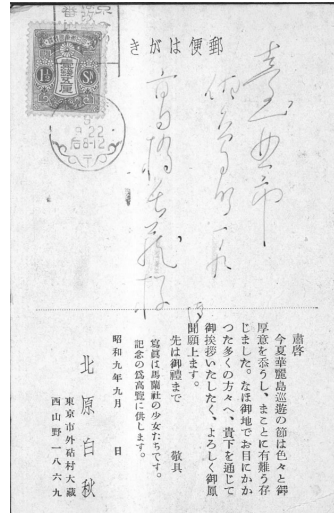 郵便はがき
1½ Sn
9.22
后8-12
臺北市
肅啓
今夏華麗島巡遊の節は色々と御
厚意を忝うし、まことに有難う存
じました。なほ御地でお目にかか
つた多くの方々へ、貴下を通じて
御挨拶いたしたく、よろしく御鳳
聞願上ます。
先は御禮まで 敬具
寫眞は馬蘭社の少女たちです。
記念の爲高覽に供します。
昭和九年九月 日
北原白秋
東京市外砧村大藏
西山野一八六九